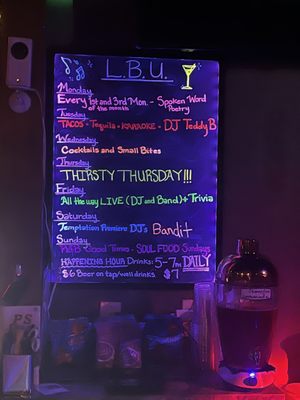 L.B.U.
Monday
Every 1st and 3rd Mon. - Spoken Word
of the month Poetry
Tuesday
TACOS - Tequila - KARAOKE - DJ Teddy B
Wednesday
Cocktails and Small Bites
Thursday
THIRSTY THURSDAY!!!
Friday
All the way LIVE (DJ and Band) + Trivia
Saturday
Temptation Premiere DJ's Bandit
Sunday
R&B Good Times - SOUL FOOD Sundays
HAPPENING HOUR Drinks: 5-7pm DAILY
$6 Beer on tap/well drinks $7
PS